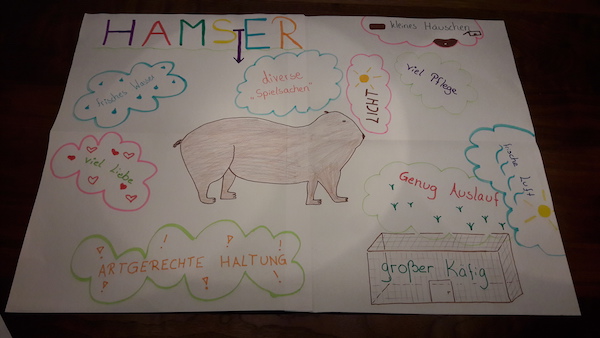 HAMSTER
kleines Häuschen
frisches Wasser
diverse
"Spielsachen"
LICHT
viel Pflege
viel Liebe
frische Luft
Genug Auslauf
ARTGERECHTE HALTUNG
großer Käfig